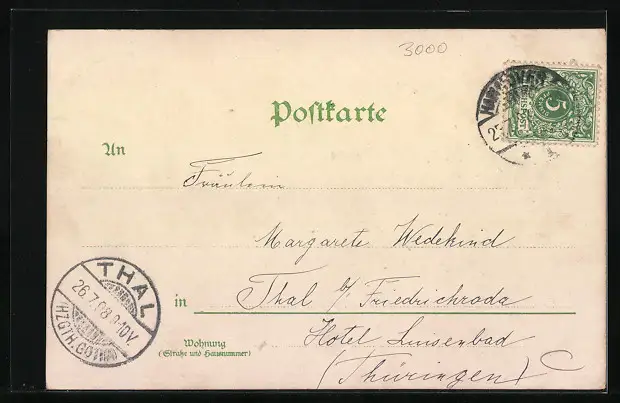 3000
Postkarte
5
An
Fräulein
Margarete Wedekind
THAL
26.7.98 9-10V.
HZGTH. GOTHA
in Thal b/ Friedrichroda
Hotel Luisenbad
Wohnung
(Straße und Hausnummer)
(Thüringen)